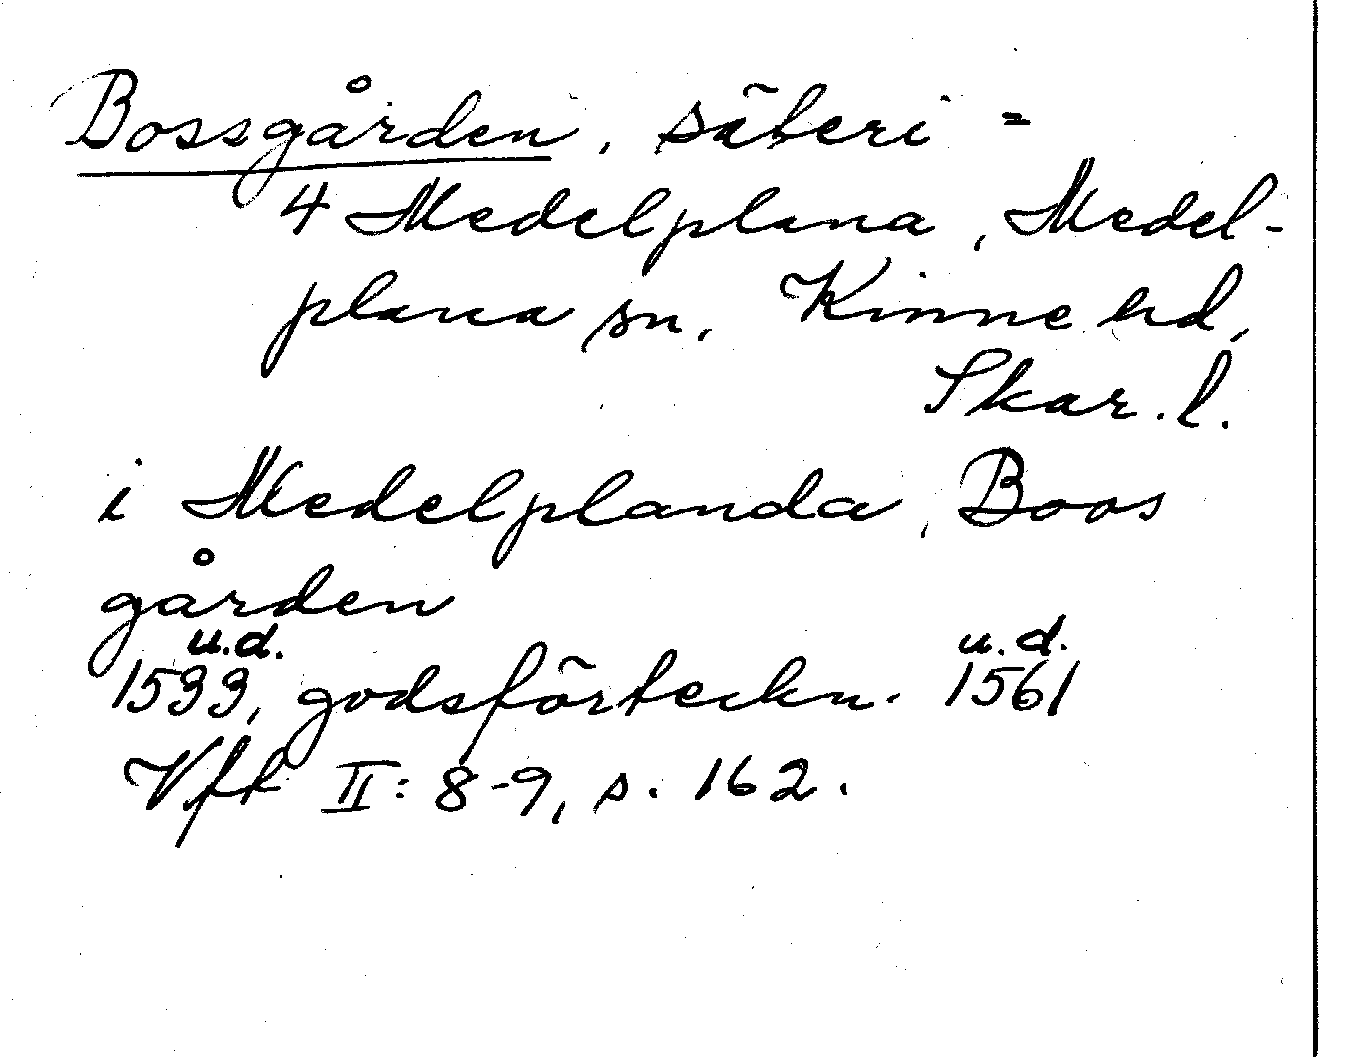 Bossgården, säteri =
4 Medelplana, Medel-
plana sn, Kinne hd,
Skar. l.
i Medelplanda, Boos
gården
u.d. u.d.
1533, godsförteckn. 1561
Vft II: 8-9, s. 162.